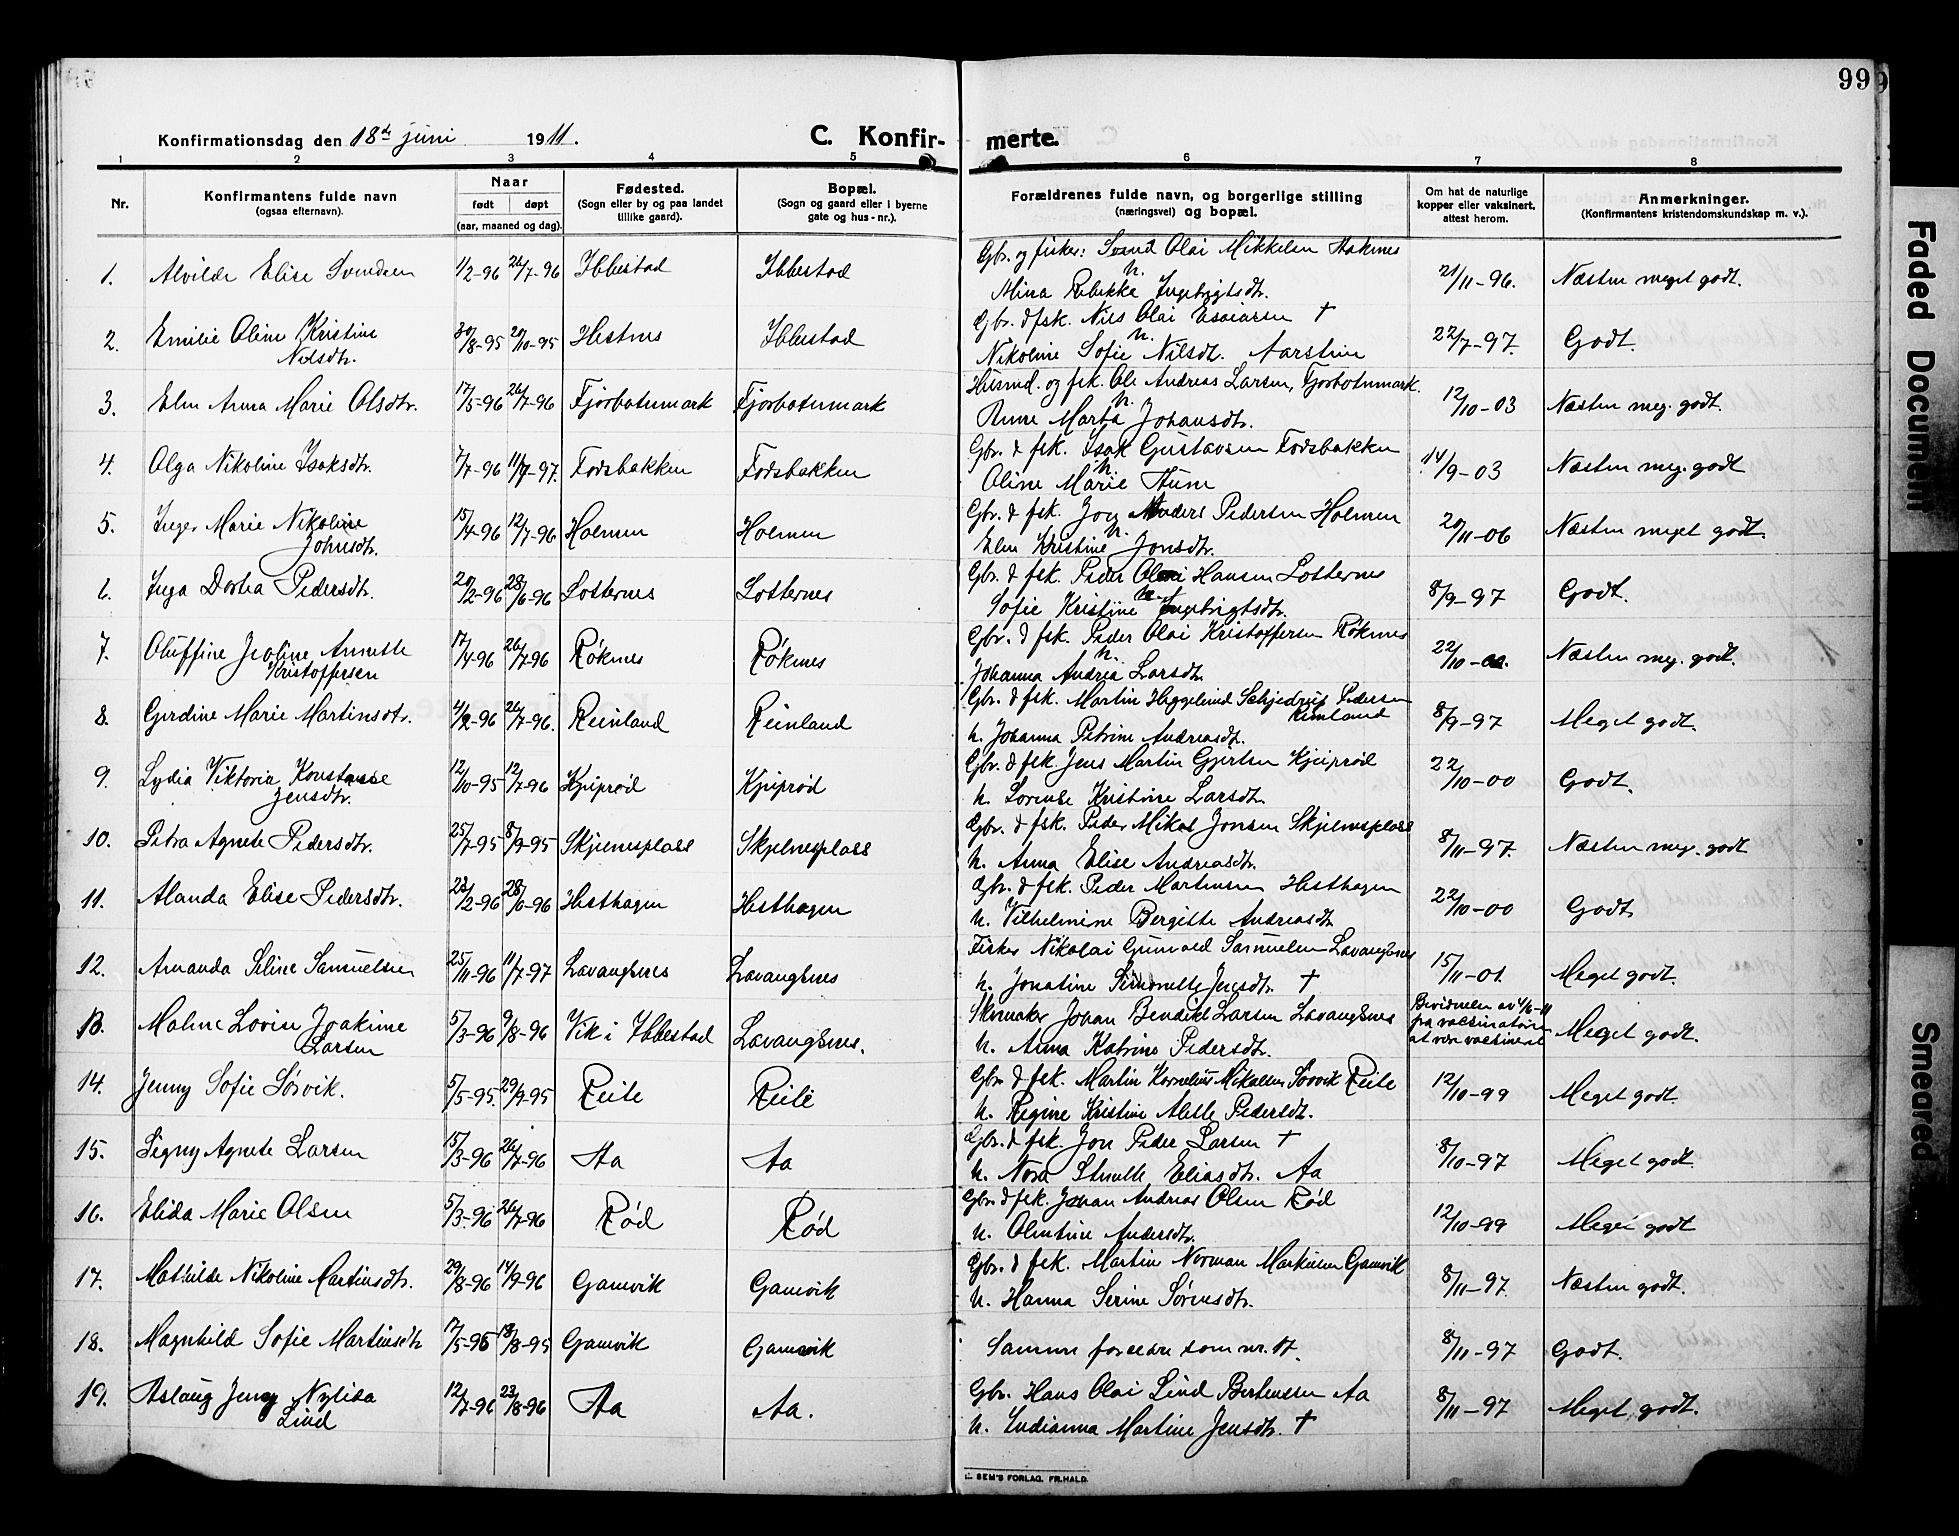 99
Konfirmationsdag den 18de juni 1911.
C. Konfirmerte.
1 2 3 4 5 6 7 8
Nr.
Konfirmantens fulde navn
(ogsaa efternavn).
Naar
født døpt
(aar, maaned og dag).
Fødested.
(Sogn eller by og paa landet
tillike gaard).
Bopæl.
(Sogn og gaard eller i byerne
gate og hus-nr.).
Forældrenes fulde navn, og borgerlige stilling
(næringsvei) og bopæl.
Om hat de naturlige
kopper eller vaksinert,
attest herom.
Anmerkninger.
(Konfirmantens kristendomskundskap m. v.).
1. Alvilde Elise Svendsen 1/2-96 26/7-96 Ibbestad Ibbestad Gbr. og fisker: Svend Olai Mikkelsen Haknes 21/11-96. Næsten meget godt.
h.
Mina Rebekka Ingebrigtsdtr.
2. Emilie Oline Kristine 30/8-95 20/10-95 Hestnes Ibbestad Gbr. & fsk. Nils Olai Esaiassen † 22/7-97. Godt.
Nilsdtr. h.
Nikoline Sofie Nilsdt. Aarstein
3. Elen Anna Marie Olsdtr. 17/5-96 26/7-96 Fjorbotnmark Fjorbotnmark Husmd. og fsk. Ole Andreas Larsen, Fjorbotnmark. 12/10-03 Næsten meg. godt.
h.
Anne Marta Johansdtr.
4. Olga Nikoline Isaksdtr. 7/7-96 11/7-97. Fodsbakken Fodsbakken Gbr. & fsk. Isak Gustavsen Fodsbakken 14/9-03 Næsten meg. godt
h.
Oline Marie
5. Inger Marie Nikoline 15/4-96 12/7-96 Holmen Holmen Gbr. & fsk. Jon Anders Pedersen Holmen 20/11-06 Næsten meget godt.
Johnsdtr. h.
Elen Kristine Jonsdtr.
6. Inga Dortea Pedersdtr. 20/2-96 28/6-96 Lotternes Lotternes Gbr. & fsk. Peder Olai Hansen Lotternes 8/9-97 Godt.
h.
Sofie Kristine Ingebrigtsdtr.
7. Oluffine Jeoline Annette 17/4-96 26/7-96 Røknes Røknes Gbr. & fsk. Peder Olai Kristoffersen Røknes 22/10- Næsten meg. godt.
Kristoffersen h.
Johanna Andrea Larsdtr.
8. Gerdine Marie Martinsdtr. 4/2-96 26/7-96. Reinland Reinland Gbr. & fsk. Martin Heggelund Schjedrup Pedersen 8/9-97 Meget godt.
Reinland
h. Johanna Petrine Andreasdt.
9. Lydia Viktoria Konstanse 12/10-95 12/7-96 Kjeiprød Kjeiprød Gbr. & fsk. Jens Martin Gjertsen Kjeiprød 22/10-00 Godt.
Jensdtr.
h. Lorense Kristine Larsdtr.
10. Petra Agnete Pedersdtr. 25/7-95 8/9-95 Skjelnesplass Skjelnesplass Gbr. & fsk. Peder Mikal Jonsen Skjelnesplass 8/11-97. Næsten meg. godt
h. Anna Elise Andreasdtr.
11. Alanda Elise Pedersdtr. 23/2-96 28/6-96 Hesthagen Hesthagen Gbr. & fsk. Peder Martinsen Hesthagen 22/10-00 Godt.
h. Vilhelmine Bergitte Andreasdt
12. Amanda Seline Samuelsen 25/11-96 11/7-97 Lavangsnes Lavangsnes Fisker Nikolai Grunvold Samuelsen Lavangsnes 15/11-01. Meget godt.
h. Jonatine Simonette Jensdtr. †
13. Malene Lovise Joakime 5/3-96 9/8-96 Vik i Ibbestad Lavangsnes. Skomaker Johan Bendikt Larsen Lavangsnes Bevidnelse av 4/6-11 Meget godt.
Larsen fra vaccinatøren
h. Anna Katrine Pedersdtr. at være vaccineret
14. Jenny Sofie Sørvik. 5/5-95. 29/9-95 Reite Reite Gbr. & fsk. Martin Kornelius Mikalsen Sørvik Reite 12/10-99 Meget godt.
h. Regine Kristine Alette Pedersdt.
15. Signy Agnete Larsen 15/3-96 26/7-96 Aa Aa Gbr. & fsk. Jon Peder Larsen † 8/10-97 Meget godt.
h. Nora Eliasdtr. Aa
16. Elida Marie Olsen 5/3-96 26/7-96 Rød Rød Gbr. & fsk. Johan Andreas Olsen Rød 12/10-99 Meget godt
h. Olentine Andersdtr.
17. Mathilde Nikoline Martinsdtr. 29/8-96 14/9-96 Gamvik Gamvik Gbr. & fsk. Martin Norman Markussen Gamvik 8/11-97 Næsten godt.
h. Hanna Serine Sørensdtr.
18. Magnhild Sofie Martinsdtr 17/5-95 18/8-95 Gamvik Gamvik Samme forældre som nr. 17. 8/11-97 Godt.
19. Aslaug Jenny Nylida 12/7-96 23/8-96 Aa Aa. Gbr. Hans Olai Lind Berntsen Aa 8/11-97 Meget godt.
Lind
h. Indianna Martine Jensdtr. †
SEM'S FORLAG, FR.HALD.
Faded Document
Smeared